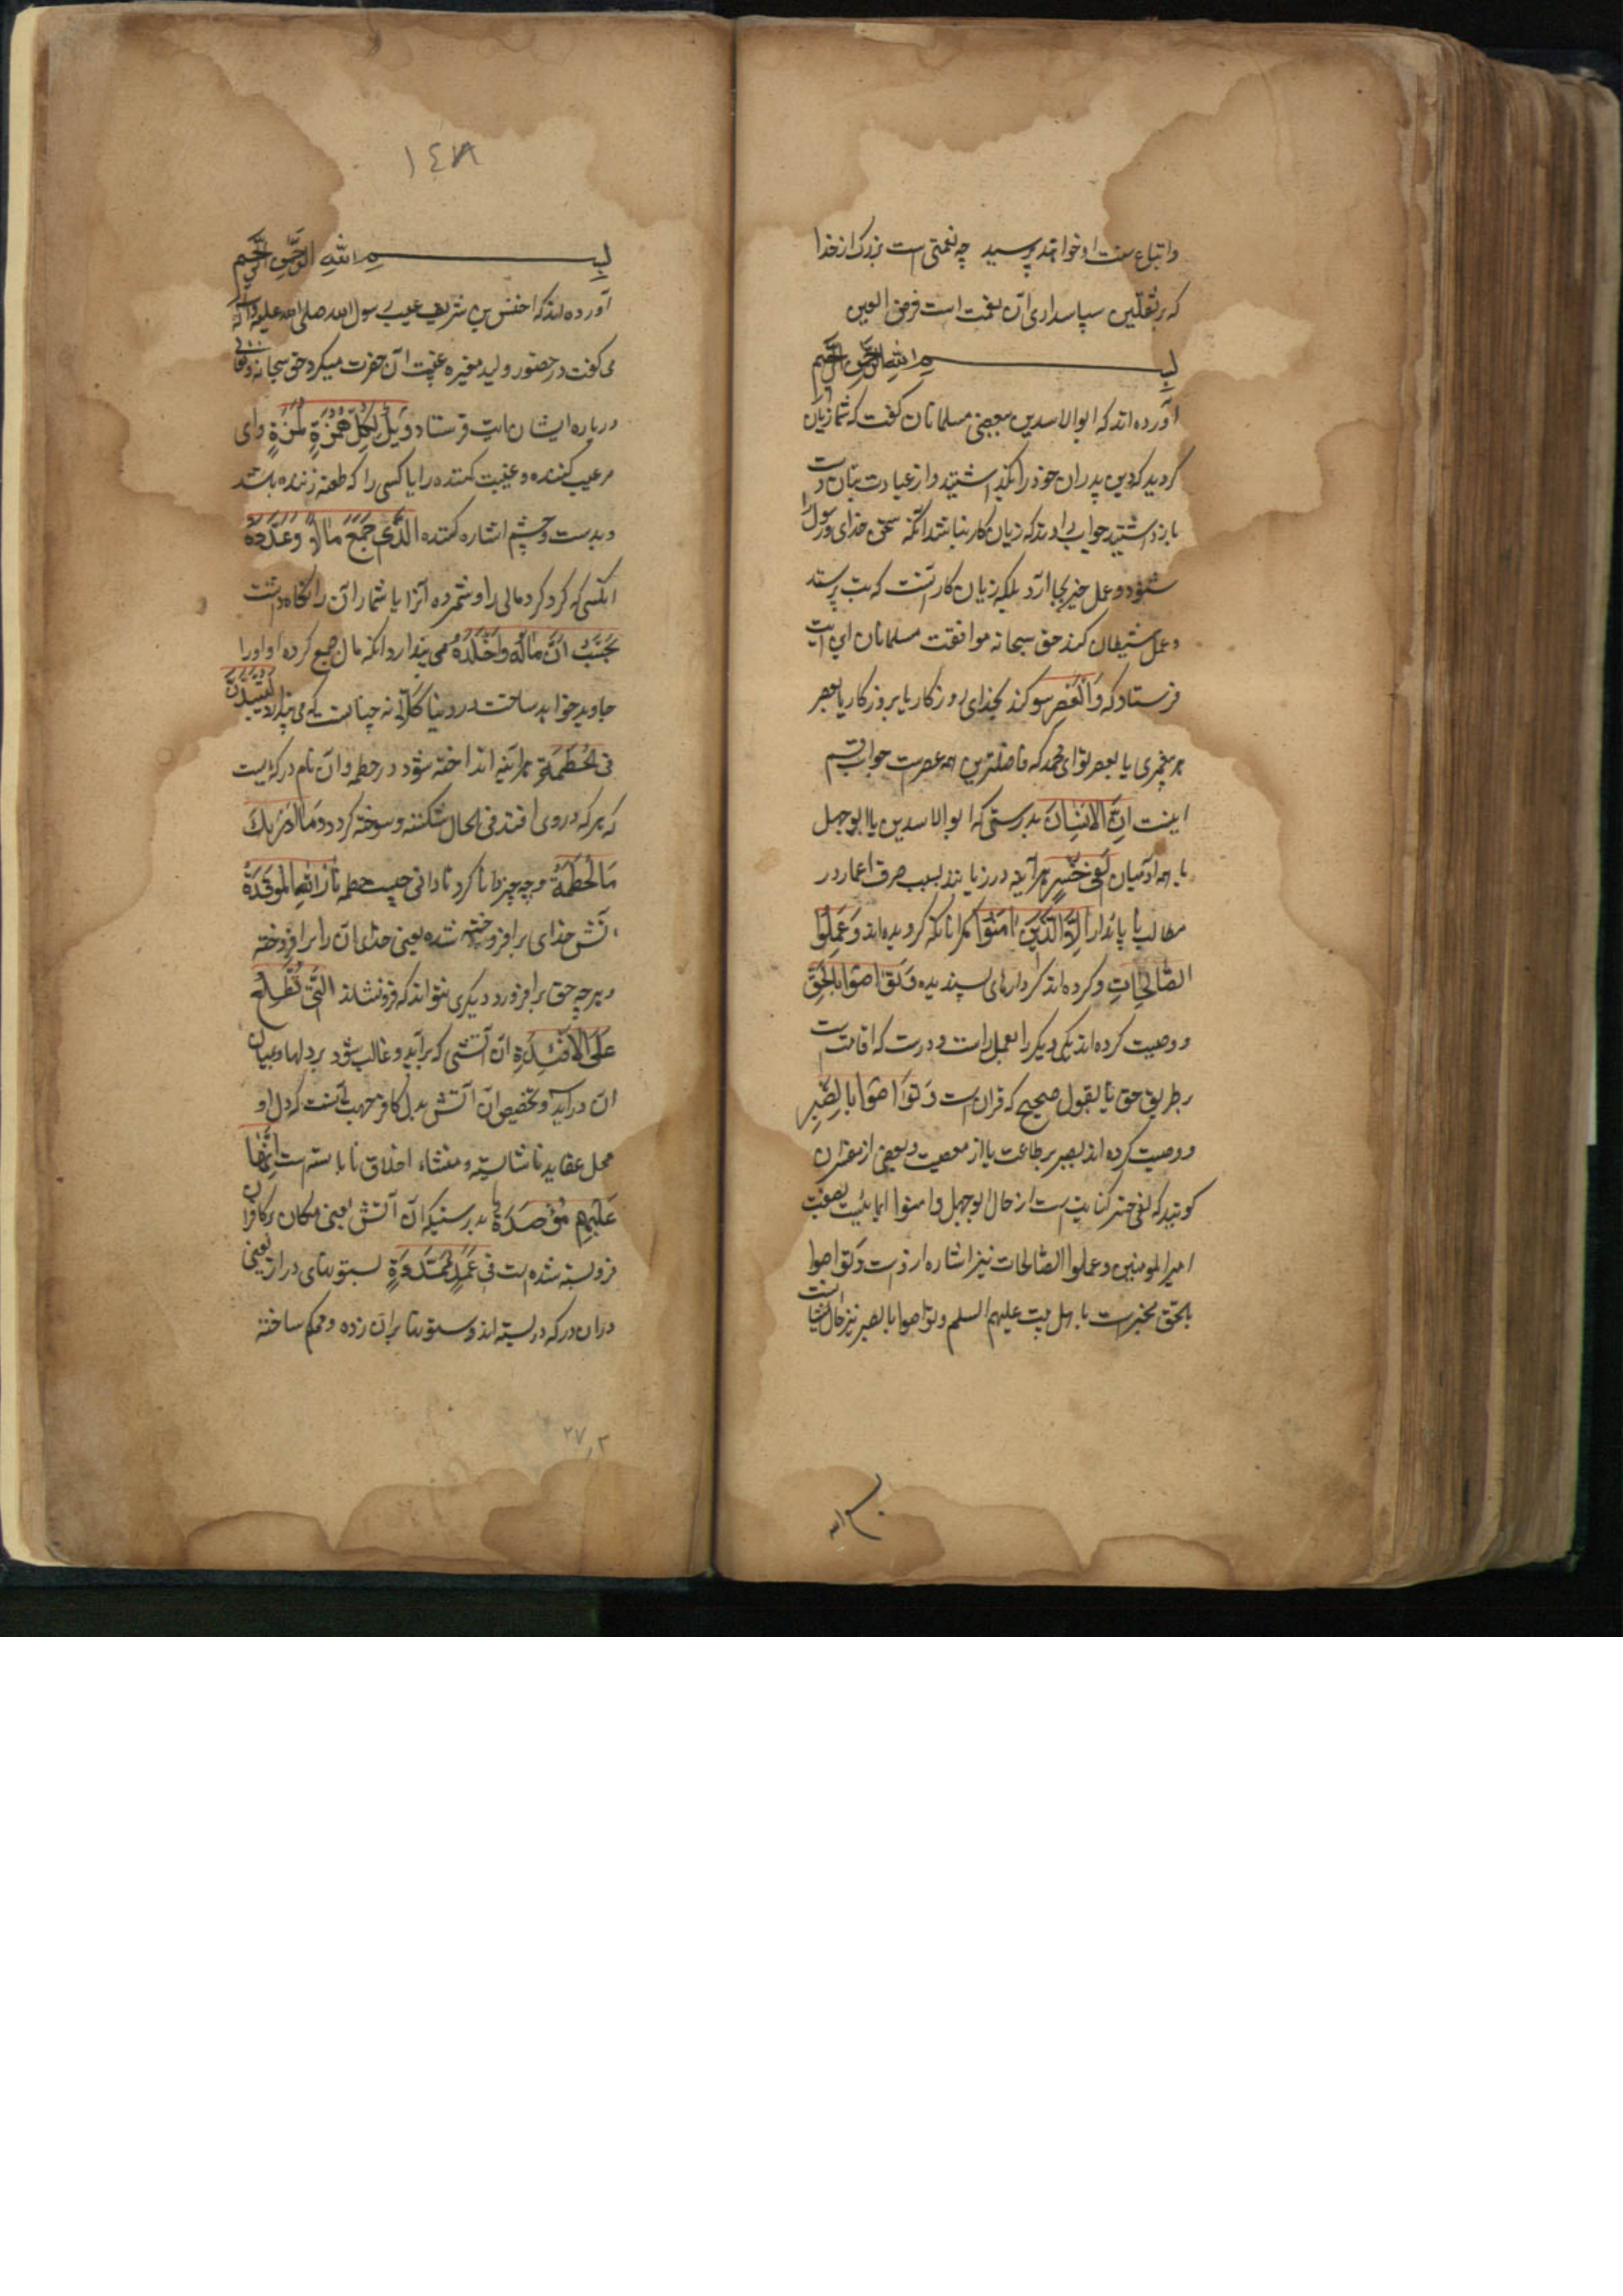 واتباع سنت او خواهند پرسید چه نعمتی است بزرک از خدا
که بر ثقلین سپاسداری آن نعمت است فرض العین
بسم الله الرحمن الرحیم
آورده اند که ابوالاسدین بعضی مسلمانان کفت که شما زیان
کردید که دین پدران خود را بکذاشتید و از عبادت بتان دست
بازداشتید جواب دادند که زیان کار نباشد آنکه سخن خدای و رسول را
شنود و عمل خیر بجا آرد بلکه زیان کار آنست که بت پرستد
و عمل شیطان کند حق سبحانه موافقت مسلمانان این آیت
فرستاد که وَالْعَصْرِ سوکند بخدای روزکار یا بروزکار یا بعصر
هر پیغمبری یا بعصر تو ای محمد که فاضلترین همه عصرست جواب قسم
اینست اِنَّ الْاِنْسَانَ بدرستی که ابوالاسدین یا ابوجهل
یا همه آدمیان لَفِی خُسْرٍ هرآینه در زیانند بسبب صرف اعمار در
مطالب ناپایدار اِلَّا الَّذِینَ اٰمَنُوا مکر آنانکه کرویده اند وَعَمِلُوا
الصَّالِحَاتِ و کرده اند کردارهای پسندیده وَتَوَاصَوْا بِالْحَقِّ
و وصیت کرده اند یکدیکر را بعمل راست و درست که اقامتست
بر طریق حق یا بقول صحیح که قرآن است وَتَوَاصَوْا بِالصَّبْرِ
و وصیت کرده اند بصبر بر طاعت یا از معصیت و بعضی از مفسران
کویند که لفی خسر کنایتست از حال ابوجهل و امنوا ایمائیست بصفت
امیرالمومنین و عملوا الصالحات نیز اشاره از وست و تواصوا
بالحق مخبرست باهل بیت علیهم السلم و تواصوا بالصبر نیز حال ایشانست
بسم الله
١٤٨
بسم الله الرحمن الرحیم
آورده اند که اخنس بن شریف عیب رسول الله صلی الله علیه وآله
می کفت در حضور و ولید مغیره غیبت آن حضرت میکرد حق سبحانه وتعالی
درباره ایشان آیت فرستاد وَیْلٌ لِکُلِّ هُمَزَةٍ لُمَزَةٍ وای
مر عیب کننده و غیبت کننده را یا کسی را که طعنه زننده باشد
و بدست و چشم اشاره کننده اَلَّذِی جَمَعَ مَالًا وَعَدَّدَهُ
آنکسی که کرد کرد مالی را و شمرده آنرا یا شمار آن را نکاه داشت
یَحْسَبُ اَنَّ مَالَهُ اَخْلَدَهُ می پندارد آنکه مال جمع کرده او او را
جاوید خواهد ساخت در دنیا کَلَّا نه چنانست که می پندارد لَیُنْبَذَنَّ
فِی الْحُطَمَةِ هرآینه انداخته شود در حطمه و آن نام درکه ایست
که هر که در وی افتد فی الحال شکسته و سوخته کردد وَمَا اَدْرٰیکَ
مَا الْحُطَمَةُ و چه چیز دانا کرد تا دانی چیست حطمه نَارُ اللّٰهِ الْمُوقَدَةُ
آتش خدای برافروخته شده یعنی خدای آن را برافروخته
و هرچه حق برافروزد دیکری نتواند که فرو نشاند اَلَّتِی تَطَّلِعُ
عَلَی الْاَفْئِدَةِ آن آتشی که برآید و غالب شود بر دلها و بمیان
آن درآید و تخصیص آن آتش بدل کافر جهت آنست که دل او
محل عقاید ناشایسته و منشاء اخلاق نابایسته است اِنَّهَا
عَلَیْهِمْ مُؤْصَدَةٌ بدرستیکه آن آتش یعنی مکان بر کافران
فروبسته شده است فِی عَمَدٍ مُمَدَّدَةٍ بستونهای دراز یعنی
در آن درکه در بسته اند و ستونها بر آن زده و محکم ساخته